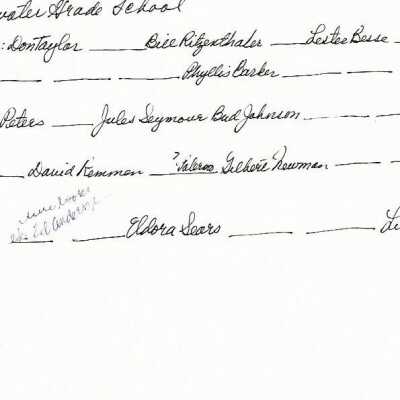 water Grade School
: Don Taylor ___ Bill Ritzenthaler ___ Lester Besse
___ ___ Phyllis Parker ___ ___ ___
Peters ___ Jules Seymour Bud Johnson ___ ___
___ David Kemmen ? Valerie Gilbert Newman ___
Ed Anderson
___ ___ Eldora Sears ___ ___ L